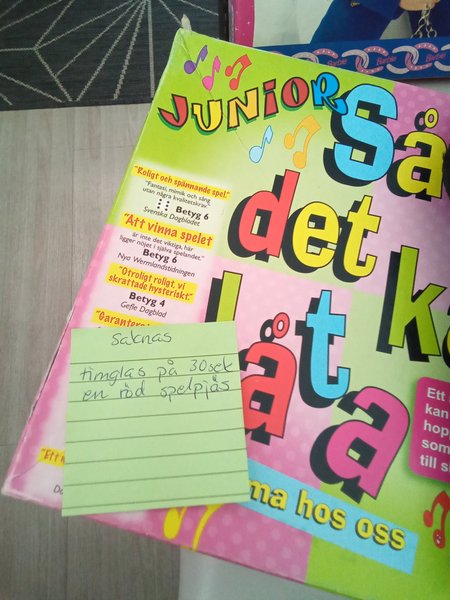 Barbie
Barbie
Barbie
JUNIOR
Så
det
låta
"Roligt och spännande spel!"
"Fantasi, mimik och sång
utan några kvalitetskrav."
Betyg 6
Svenska Dagbladet
"Att vinna spelet
är inte det viktiga, här
ligger nöjet i själva spelandet."
Betyg 6
Nya Wermlandstidningen
"Otroligt roligt, vi
skrattade hysteriskt"
Betyg 4
Gefle Dagblad
Saknas
timglas på 30sek
en röd spelpjäs
Ett
kan
hopp
som
till s
ma hos oss